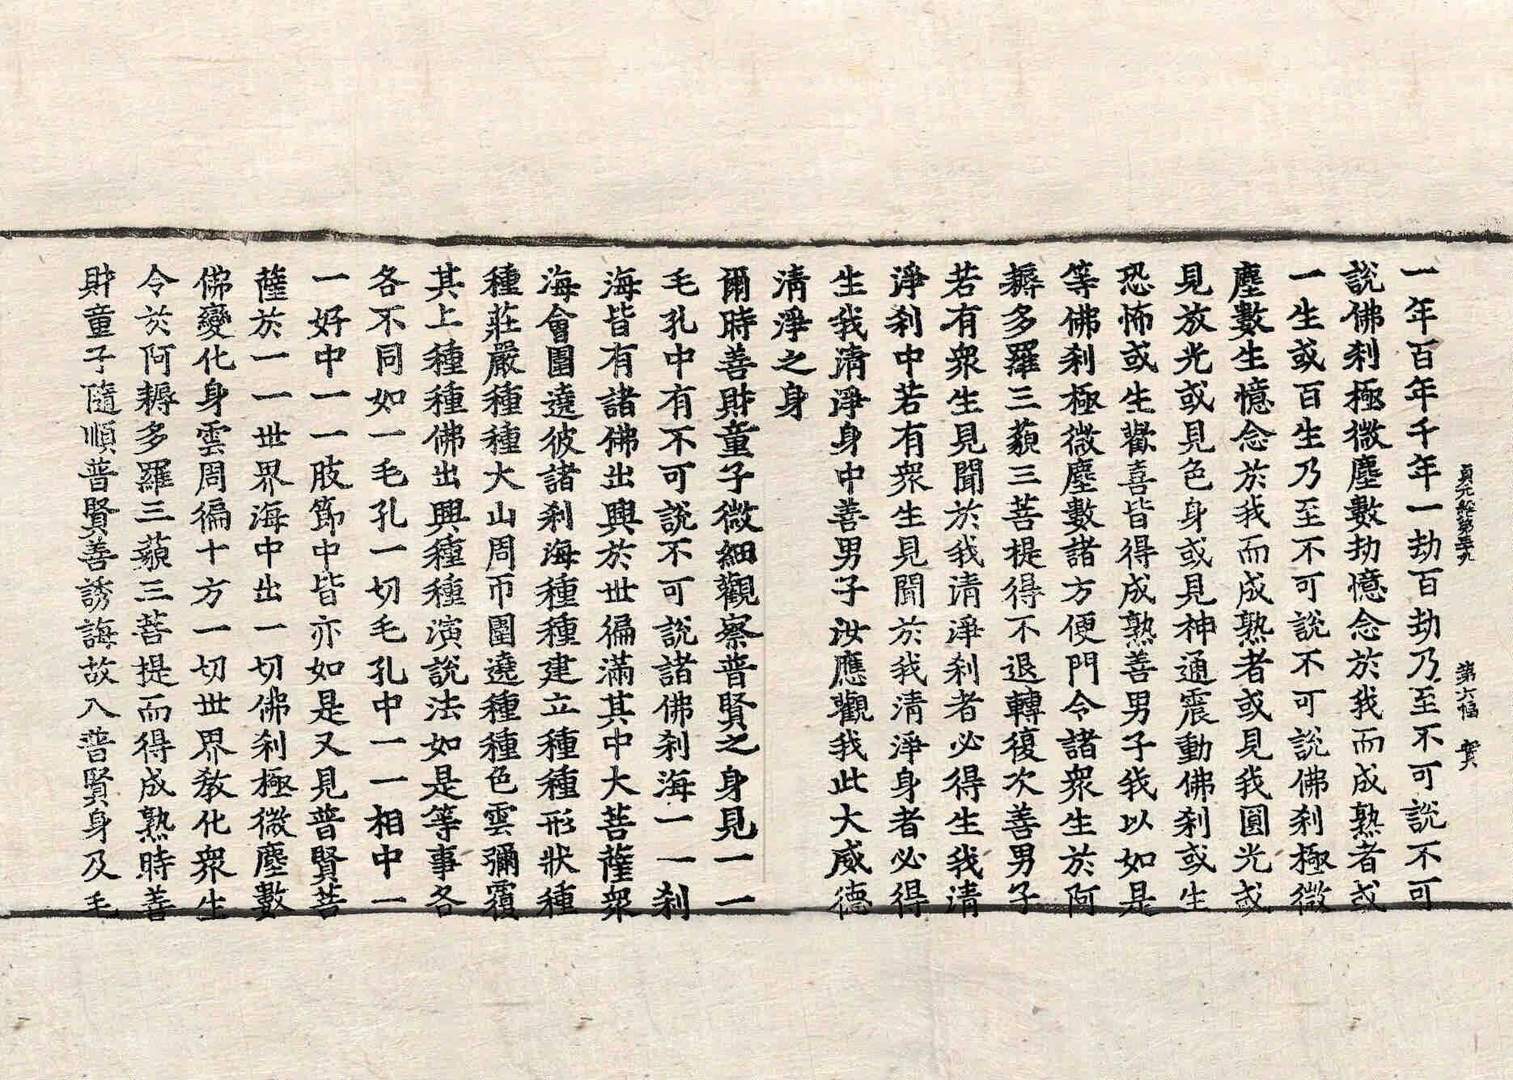 貞元經第三十九 第六幅 實
一年百年千年一劫百劫乃至不可說不可
說佛刹極微塵數劫憶念於我而成熟者或
一生或百生乃至不可說不可說佛刹極微
塵數生憶念於我而成熟者或見我圓光或
見放光或見色身或見神通震動佛刹或生
恐怖或生歡喜皆得成熟善男子我以如是
等佛刹極微塵數諸方便門令諸衆生於阿
耨多羅三藐三菩提得不退轉復次善男子
若有衆生見聞於我清淨刹者必得生我清
淨刹中若有衆生見聞於我清淨身者必得
生我清淨身中善男子汝應觀我此大威德
清淨之身
爾時善財童子微細觀察普賢之身見一一
毛孔中有不可說不可說諸佛刹海一一刹
海皆有諸佛出興於世徧滿其中大菩薩衆
海會圍遶彼諸刹海種種建立種種形狀種
種莊嚴種種大山周帀圍遶種種色雲彌覆
其上種種佛出興種種演說法如是等事各
各不同如一毛孔一切毛孔中一一相中一
一好中一一肢節中皆亦如是又見普賢菩
薩於一一世界海中出一切佛刹極微塵數
佛變化身雲周徧十方一切世界教化衆生
令於阿耨多羅三藐三菩提而得成熟時善
財童子隨順普賢善誘誨故入普賢身及毛